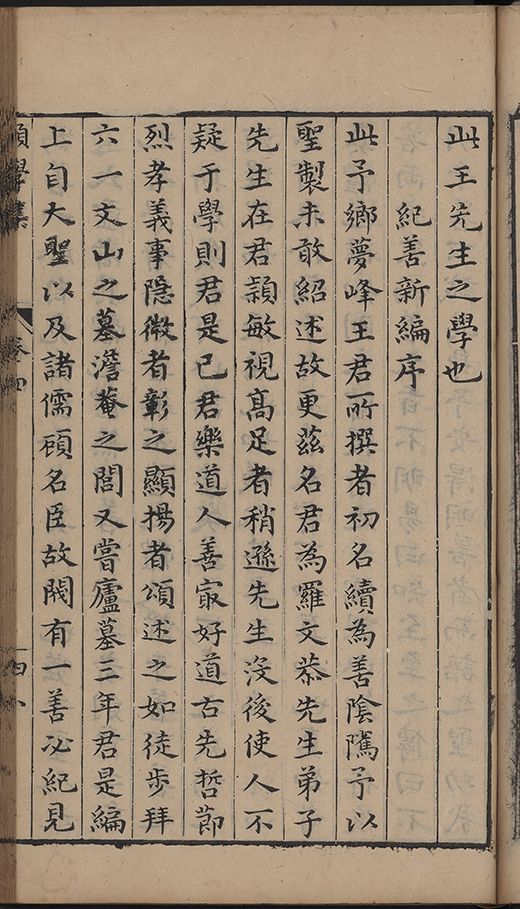 此王先生之學也
紀善新編序
此予鄉夢峰王君所撰者初名續為善陰隲予以
聖製未敢紹述故更茲名君為羅文恭先生弟子
先生在君頴敏視髙足者稍遜先生沒後使人不
疑于學則君是已君樂道人善㝡好道古先哲節
烈孝義事隱微者彰之顯揚者頌述之如徒步拜
六一文山之墓澹菴之閭又嘗廬墓三年君是編
上自大聖以及諸儒碩名臣故閥有一善必紀見
學集
卷四
四八